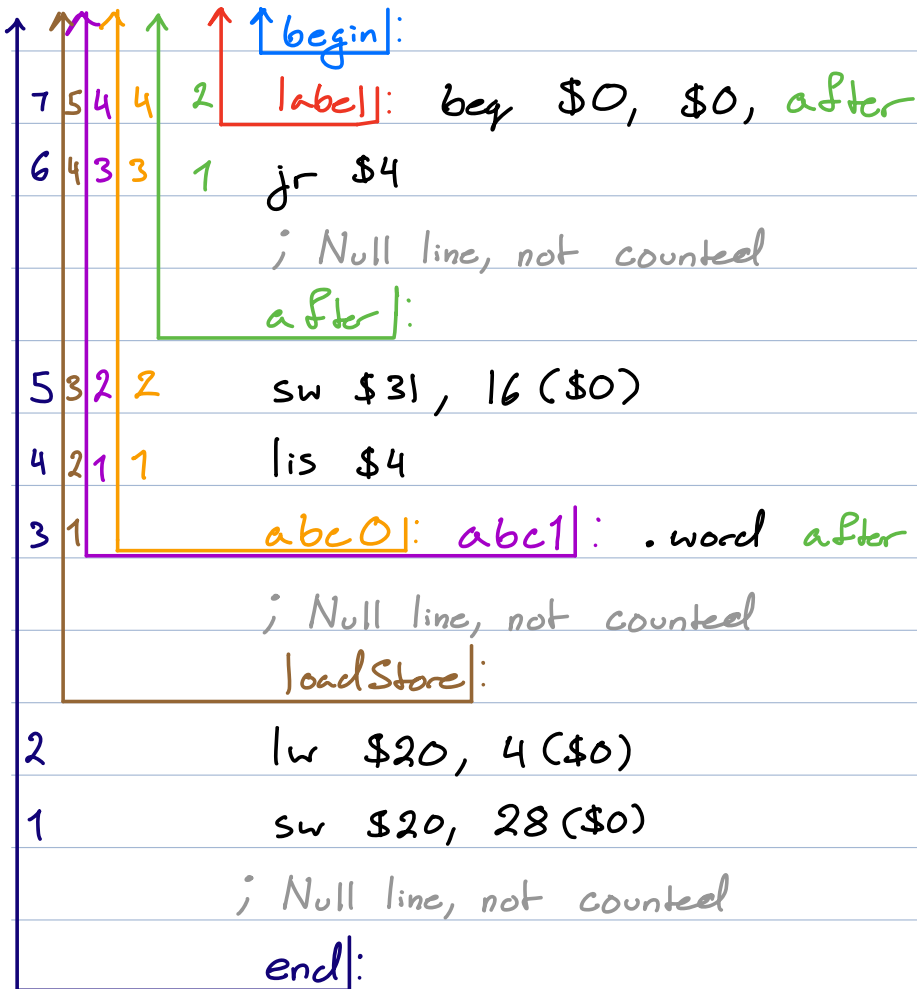 begin:
7 5 4 4 2 label: beq $0, $0, after
6 4 3 3 1 jr $4
; Null line, not counted
after:
5 3 2 2 sw $31, 16($0)
4 2 1 1 lis $4
3 1 abc0: abc1: .word after
; Null line, not counted
loadStore:
2 lw $20, 4($0)
1 sw $20, 28($0)
; Null line, not counted
end: